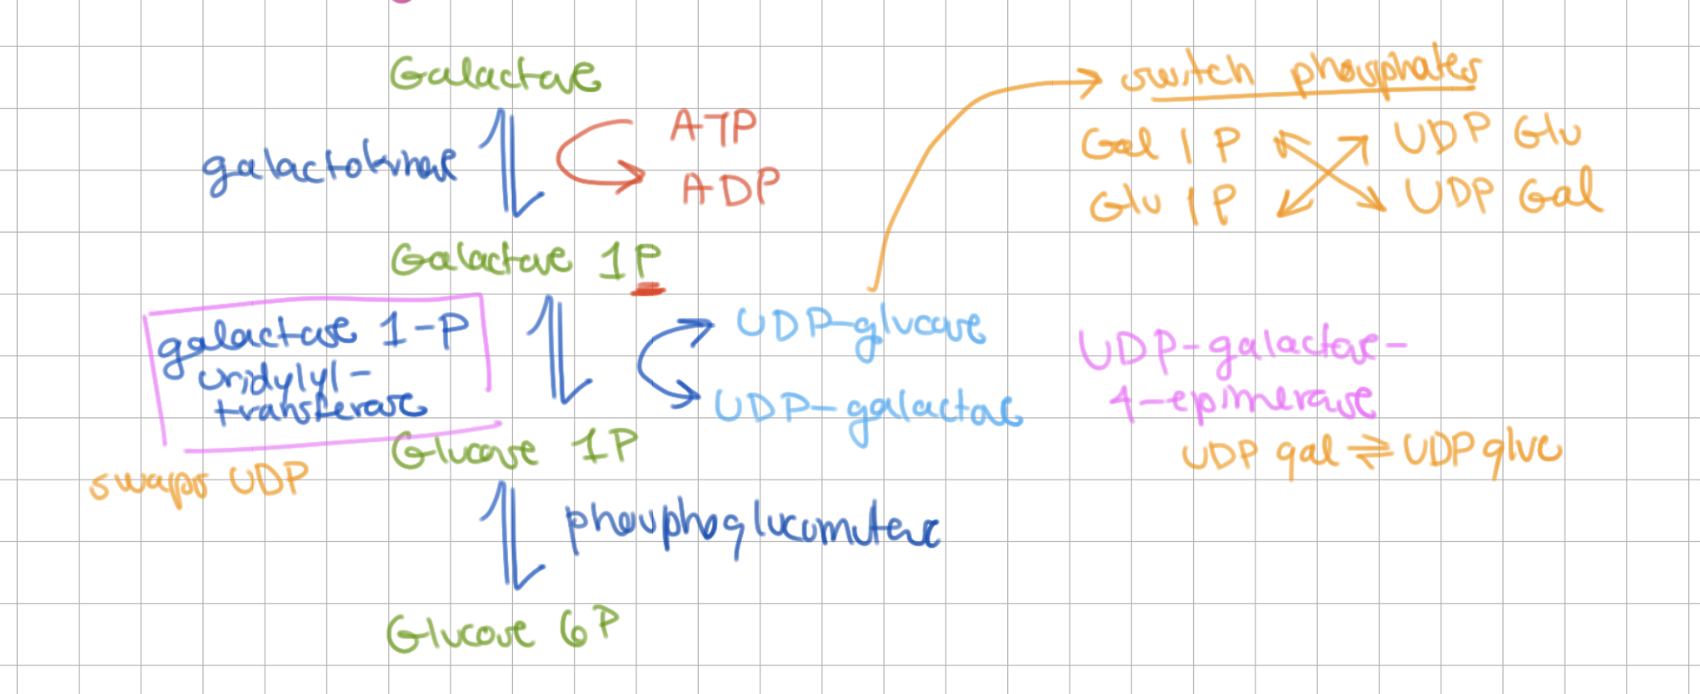 Galactose
galactokinase
ATP
ADP
Galactose 1P
galactose 1-P
uridylyl-
transferase
swaps UDP
UDP-glucose
UDP-galactose
Glucose 1P
phosphoglucomutase
Glucose 6P
switch phosphates
Gal 1P UDP Glu
Glu 1P UDP Gal
UDP-galactose-
4-epimerase
UDP gal ⇌ UDP gluc